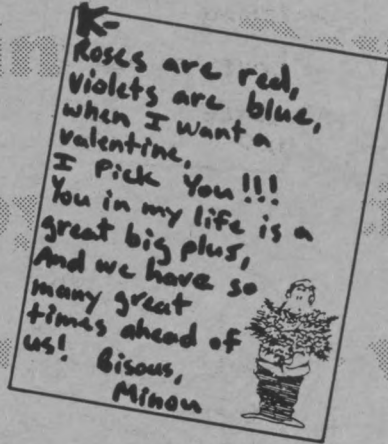 K-
Roses are red,
Violets are blue,
when I want a
valentine,
I Pick You!!!
You in my life is a
great big plus,
And we have so
many great
times ahead of
us! Bisous,
Minou